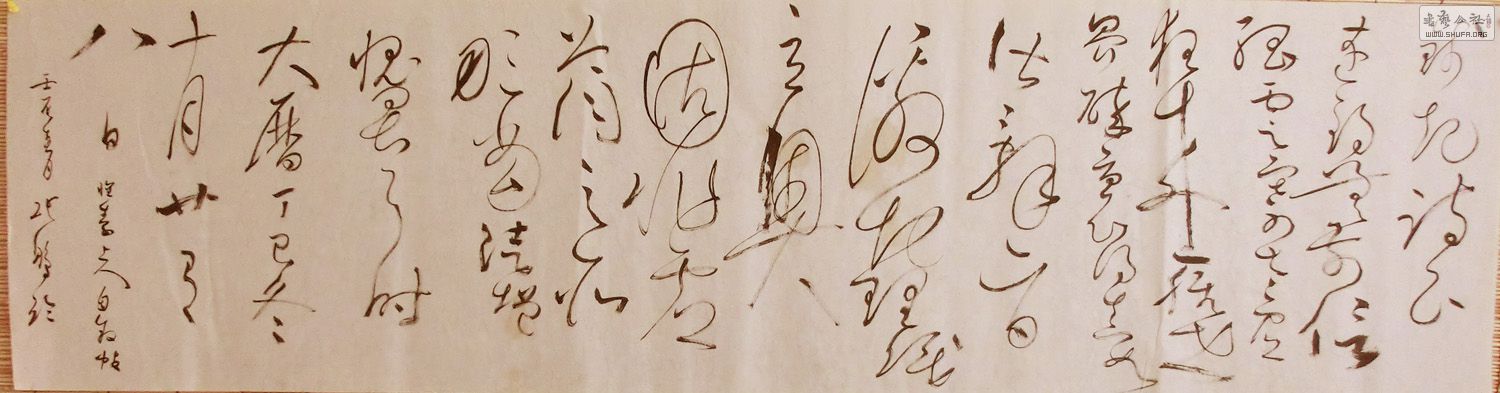 錢起詩云
遠錫無前侶
孤雲寄太虛
狂來輕世
界醉裏得真如
皆辭旨
激切理識
玄奧
固非虛
蕩之所
敢當徒增
愧畏耳時
大曆丁巳冬
十月廿有
八日
臨素上人自敘帖
臨
書藝公社
WWW.SHUFA.ORG